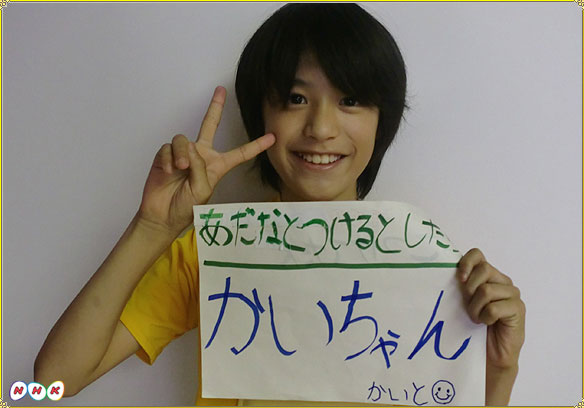 あだなとつけるとした
かいちゃん
かいと
NHK